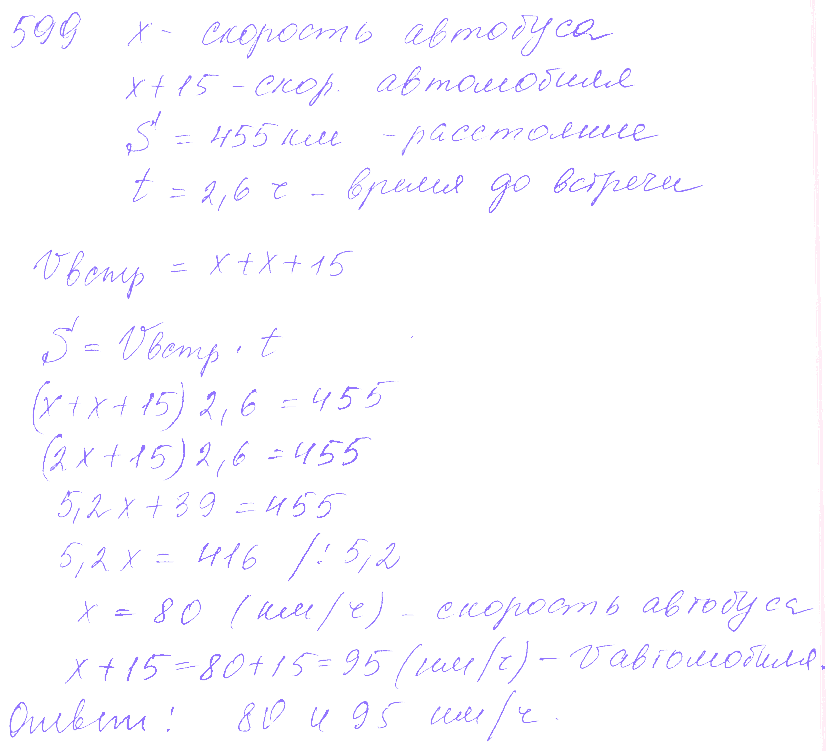 599 x - скорость автобуса
x+15 - скор. автомобиля
S = 455 км - расстояние
t = 2,6 ч - время до встречи
Vвстр = x+x+15
S = Vвстр · t
(x+x+15) 2,6 = 455
(2x+15) 2,6 = 455
5,2x+39 = 455
5,2x = 416 /: 5,2
x = 80 (км/ч) - скорость автобуса
x+15=80+15=95 (км/ч) - Vавтомобиля.
Ответ: 80 и 95 км/ч.